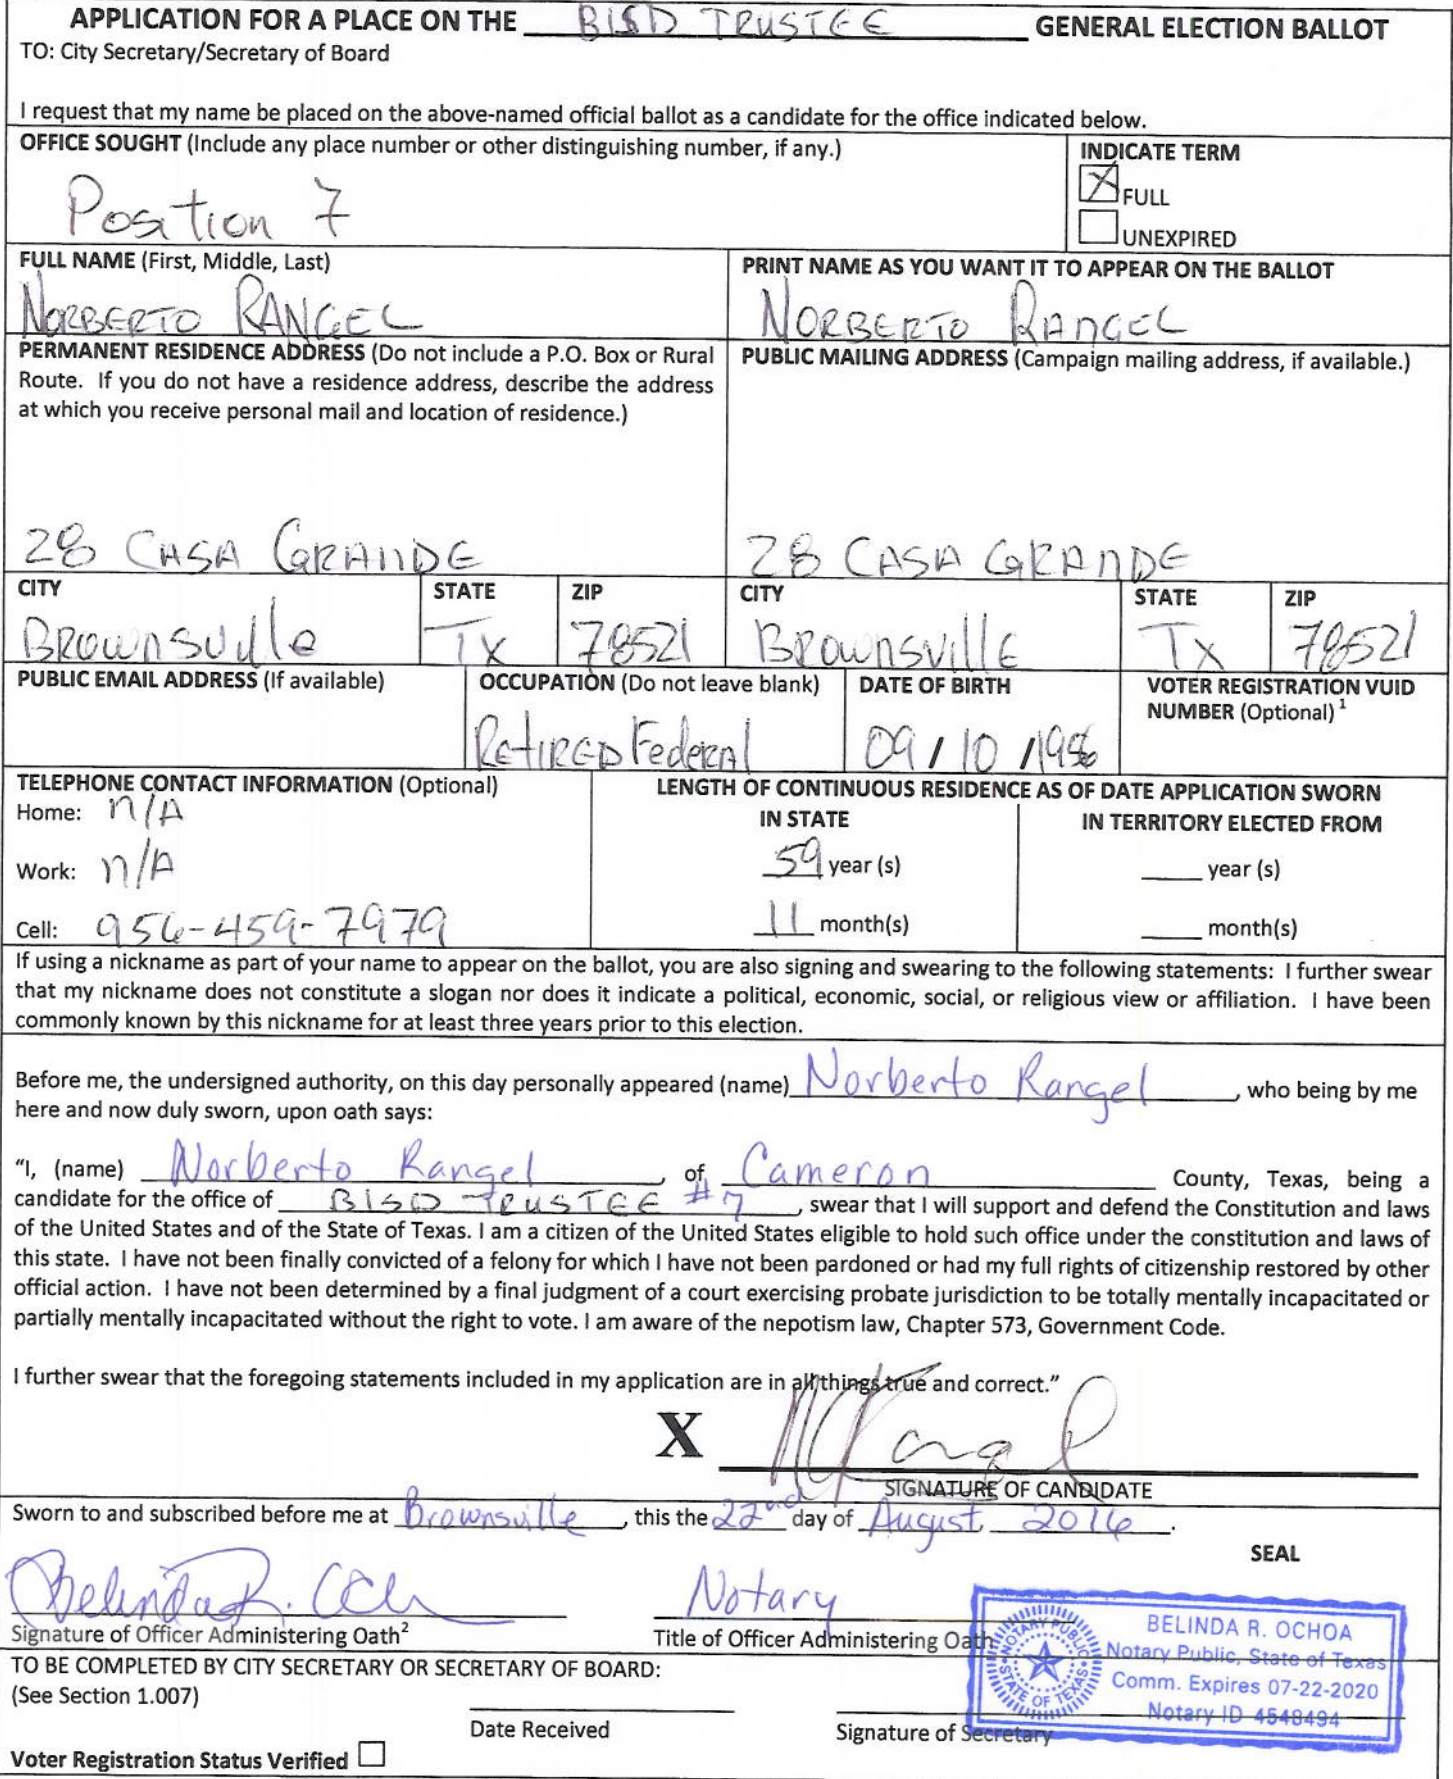 APPLICATION FOR A PLACE ON THE BISD TRUSTEE GENERAL ELECTION BALLOT
TO: City Secretary/Secretary of Board
I request that my name be placed on the above-named official ballot as a candidate for the office indicated below.
OFFICE SOUGHT (Include any place number or other distinguishing number, if any.)
Position 7
INDICATE TERM
X FULL
UNEXPIRED
FULL NAME (First, Middle, Last)
NORBERTO RANGEL
PRINT NAME AS YOU WANT IT TO APPEAR ON THE BALLOT
NORBERTO RANGEL
PERMANENT RESIDENCE ADDRESS (Do not include a P.O. Box or Rural
Route. If you do not have a residence address, describe the address
at which you receive personal mail and location of residence.)
28 CASA GRANDE
PUBLIC MAILING ADDRESS (Campaign mailing address, if available.)
28 CASA GRANDE
CITY
Brownsville
STATE
Tx
ZIP
78521
CITY
Brownsville
STATE
Tx
ZIP
78521
PUBLIC EMAIL ADDRESS (If available)
OCCUPATION (Do not leave blank)
Retired Federal
DATE OF BIRTH
09/10/1956
VOTER REGISTRATION VUID
NUMBER (Optional) 1
TELEPHONE CONTACT INFORMATION (Optional)
Home: n/A
Work: n/A
Cell: 956-459-7979
LENGTH OF CONTINUOUS RESIDENCE AS OF DATE APPLICATION SWORN
IN STATE
59 year (s)
11 month(s)
IN TERRITORY ELECTED FROM
year (s)
month(s)
If using a nickname as part of your name to appear on the ballot, you are also signing and swearing to the following statements: I further swear
that my nickname does not constitute a slogan nor does it indicate a political, economic, social, or religious view or affiliation. I have been
commonly known by this nickname for at least three years prior to this election.
Before me, the undersigned authority, on this day personally appeared (name) Norberto Rangel, who being by me
here and now duly sworn, upon oath says:
"I, (name) Norberto Rangel, of Cameron County, Texas, being a
candidate for the office of BISD TRUSTEE #7, swear that I will support and defend the Constitution and laws
of the United States and of the State of Texas. I am a citizen of the United States eligible to hold such office under the constitution and laws of
this state. I have not been finally convicted of a felony for which I have not been pardoned or had my full rights of citizenship restored by other
official action. I have not been determined by a final judgment of a court exercising probate jurisdiction to be totally mentally incapacitated or
partially mentally incapacitated without the right to vote. I am aware of the nepotism law, Chapter 573, Government Code.
I further swear that the foregoing statements included in my application are in all things true and correct."
X
SIGNATURE OF CANDIDATE
Sworn to and subscribed before me at Brownsville, this the 22nd day of August, 2016.
SEAL
Belinda R. Ochoa
Signature of Officer Administering Oath2
Notary
Title of Officer Administering Oath
BELINDA R. OCHOA
Notary Public, State of Texas
Comm. Expires 07-22-2020
Notary ID 4548494
NOTARY PUBLIC
STATE OF TEXAS
TO BE COMPLETED BY CITY SECRETARY OR SECRETARY OF BOARD:
(See Section 1.007)
Date Received
Signature of Secretary
Voter Registration Status Verified